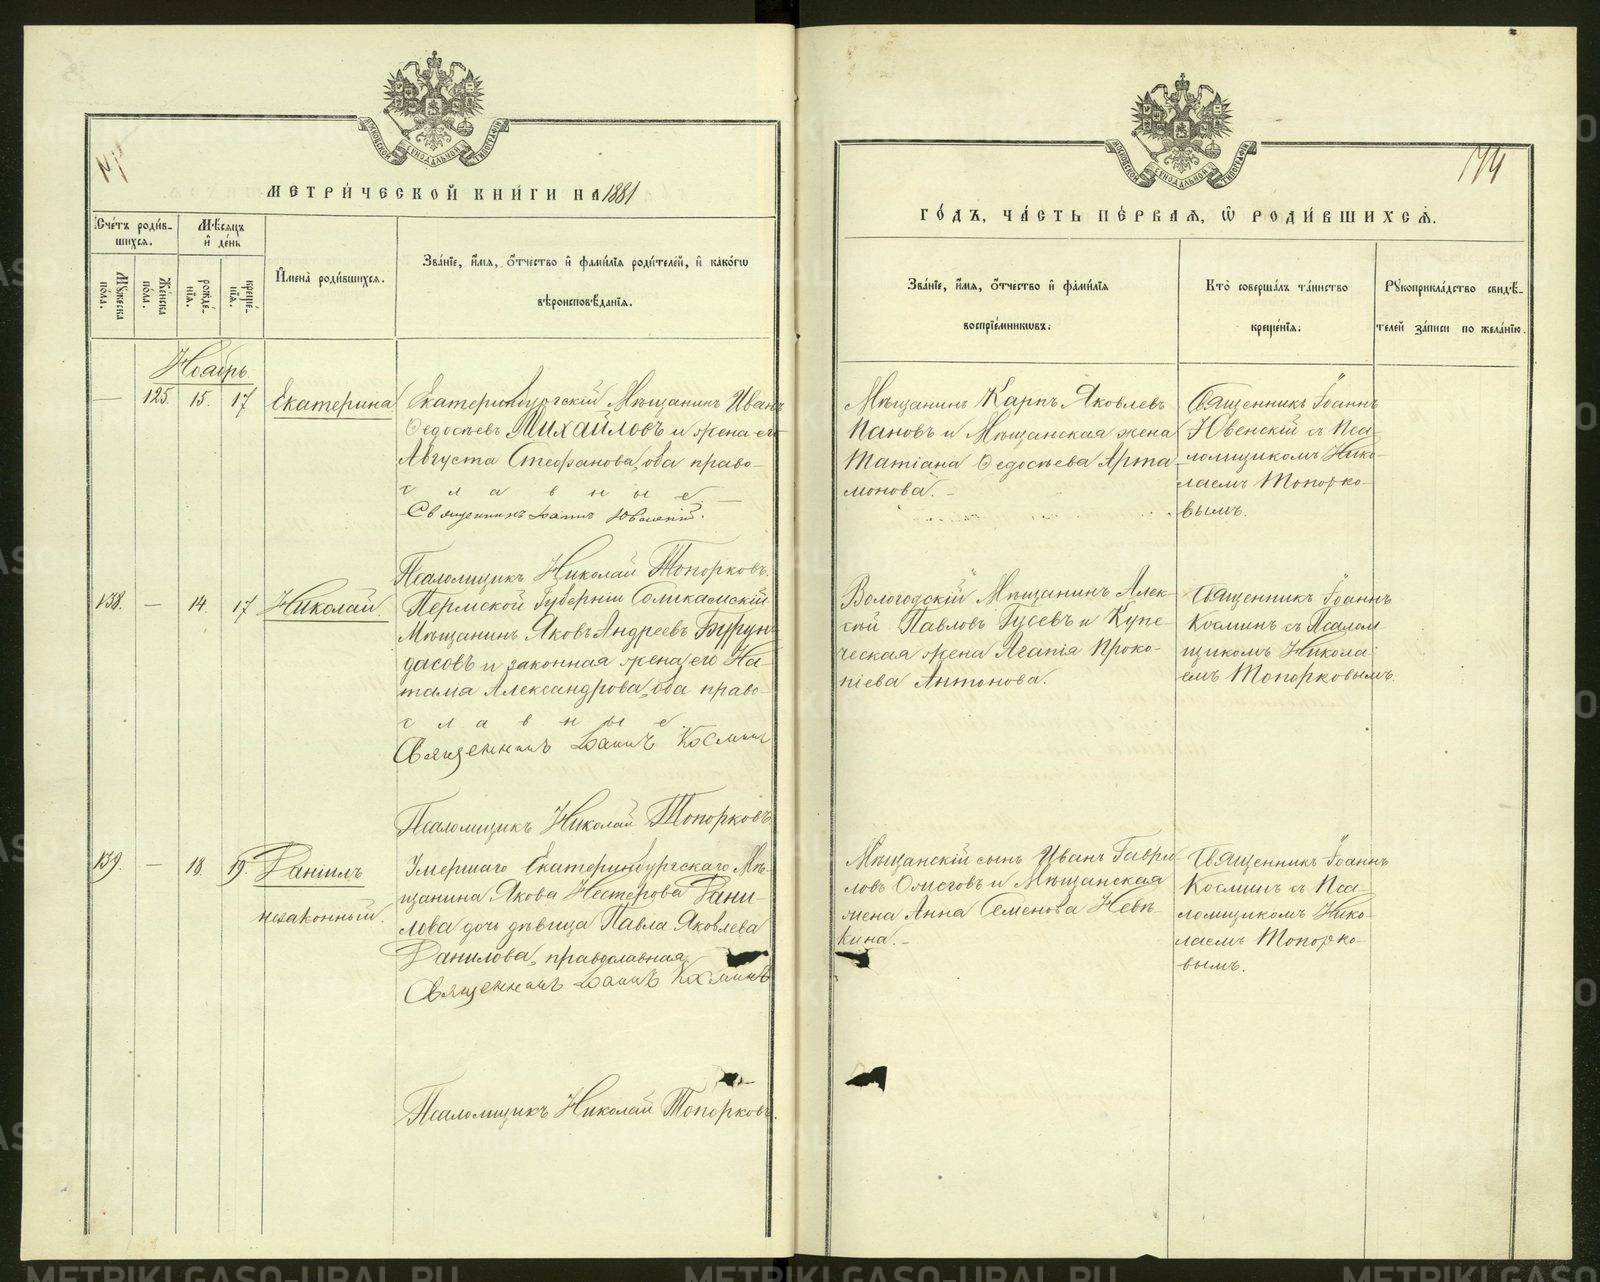 МОСКОВСКОЙ СѴНОДАЛЬНОЙ ТИПОГРАФІИ
МЕТРИ́ЧЕСКОЙ КНИ́ГИ НА 1881
Сче́тъ роди́в-
шихся.
Мѣ́сяцъ
и҆ де́нь
Му́жеска
по́ла.
Же́нска
по́ла.
рожде́-
нїя.
креще́-
нїя.
И҆мена̀ роди́вшихся.
Зва́нїе, и҆́мя, ѻ҆́тчество и҆ фами́лїя роди́телей, и҆ како́гѡ
вѣроисповѣ́данїя.
Ноябрь
— 125. 15. 17 Екатерина
Екатеринбургскій Мѣщанинъ Иванъ
Ѳедосѣевъ Михайловъ и жена его
Августа Стефанова, оба право-
славные —
Священникъ Іоаннъ Ювенскій.
Псаломщикъ Николай Топорковъ.
138. — 14. 17 Николай.
Пермской Губерніи Соликамскій
Мѣщанинъ Яковъ Андреевъ Бурун-
дасовъ и законная жена его На-
талія Александрова, оба право-
славные
Священникъ Іоаннъ Косминъ
Псаломщикъ Николай Топорковъ
139. — 18. 19. Даніилъ
незаконный.
Умершаго Екатеринбургскаго Мѣ-
щанина Якова Нестерова Дани-
лова дочь дѣвица Павла Яковлева
Данилова, православная.
Священникъ Іоаннъ Косминъ
Псаломщикъ Николай Топорковъ.
МОСКОВСКОЙ СѴНОДАЛЬНОЙ ТИПОГРАФІИ
174
ГО́ДЪ, ЧА́СТЬ ПЕ́РВАЯ, Ѡ҆ РОДИ́ВШИХСЯ.
Зва́нїе, и҆́мя, ѻ҆́тчество и҆ фами́лїя
воспрїе́мникѡвъ.
Кто̀ соверша́лъ та́инство
креще́нїя.
Рꙋкоприкла́дство свидѣ́-
телей за́писи по жела́нїю.
Мѣщанинъ Карпъ Яковлевъ
Пановъ и Мѣщанская жена
Татіана Ѳедосѣева Арта-
монова. -
Священникъ Іоаннъ
Ювенскій съ Пса-
ломщикомъ Нико-
лаемъ Топорко-
вымъ.
Вологодскій Мѣщанинъ Алек-
сѣй Павловъ Гусевъ и Купе-
ческая жена Агапія Проко-
піева Антонова.
Священникъ Іоаннъ
Косминъ съ Псалом-
щикомъ Никола-
емъ Топорковымъ.
Мѣщанскій сынъ Иванъ Гаври-
ловъ и Мѣщанская
жена Анна Семенова Невѣ-
кина. -
Священникъ Іоаннъ
Косминъ съ Пса-
ломщикомъ Нико-
лаемъ Топорко-
вымъ.
METRIKI.GASO-URAL.RU